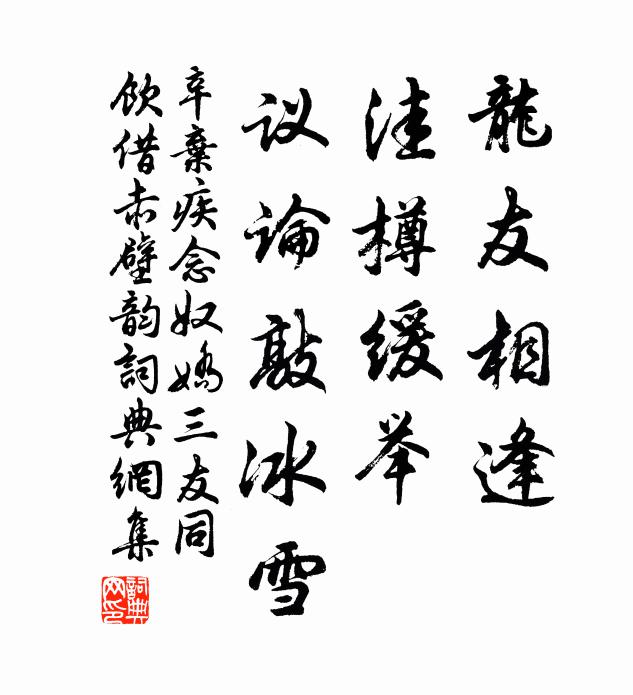 龍友相逢
洼樽缓举
议論敲冰雪
辛棄疾念奴嬌三友同
飲借赤壁韵詞典網集
詞典网印